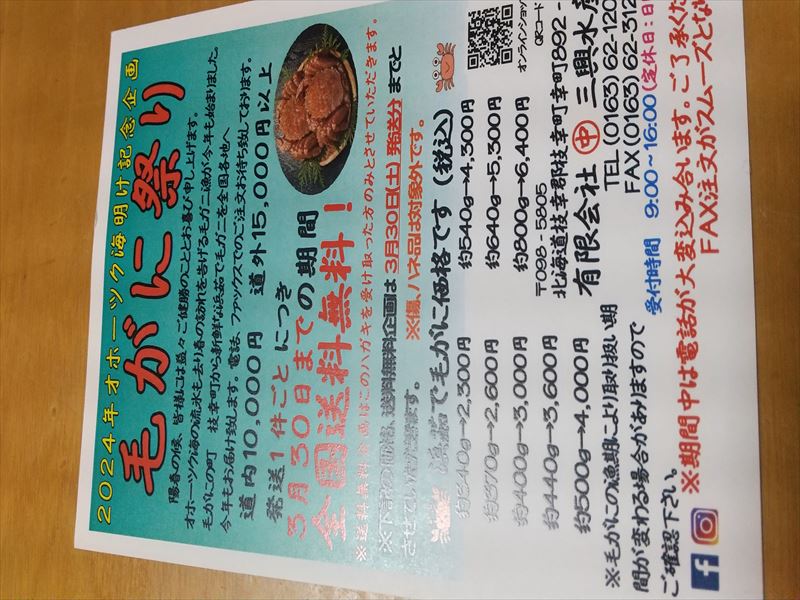 2024年オホーツク海明け記念企画
毛がに祭り
陽春の候、皆様には益々ご健勝のこととお喜び申し上げます。
オホーツク海の流氷も去り春の訪れを告げる毛ガニ漁が今年も始まりました
毛がにの町 枝幸町から新鮮な浜茹で毛ガニを全国各地へ
今年もお届け致します。電話、ファックスでのご注文お待ち致しております。
道内10,000円 道外15,000円以上
発送1件ごとにつき
3月30日までの期間
全国送料無料！
※送料無料企画はこのハガキを受け取った方のみとさせていただきます。
※下記の価格、送料無料企画は3月30日(土)発送分までと
させていただきます。 ※傷、ハネ品は対象外です。
浜茹で毛がに価格です(税込)
約340g→2,300円 約540g→4,300円
約370g→2,600円 約640g→5,300円
約400g→3,000円 約800g→6,400円
約440g→3,600円
約500g→4,000円
〒098-5805
北海道枝幸郡枝幸町幸町892-
有限会社 中 三興水産
TEL(0163)62-120
FAX(0163)62-312
受付時間 9:00~16:00(定休日:日
オンラインショップ
QRコード
※毛がにの漁期により取り扱い期
間が変わる場合がありますので
ご確認下さい。
※期間中は電話が大変込み合います。ご了承くだ
FAX注文がスムーズとな